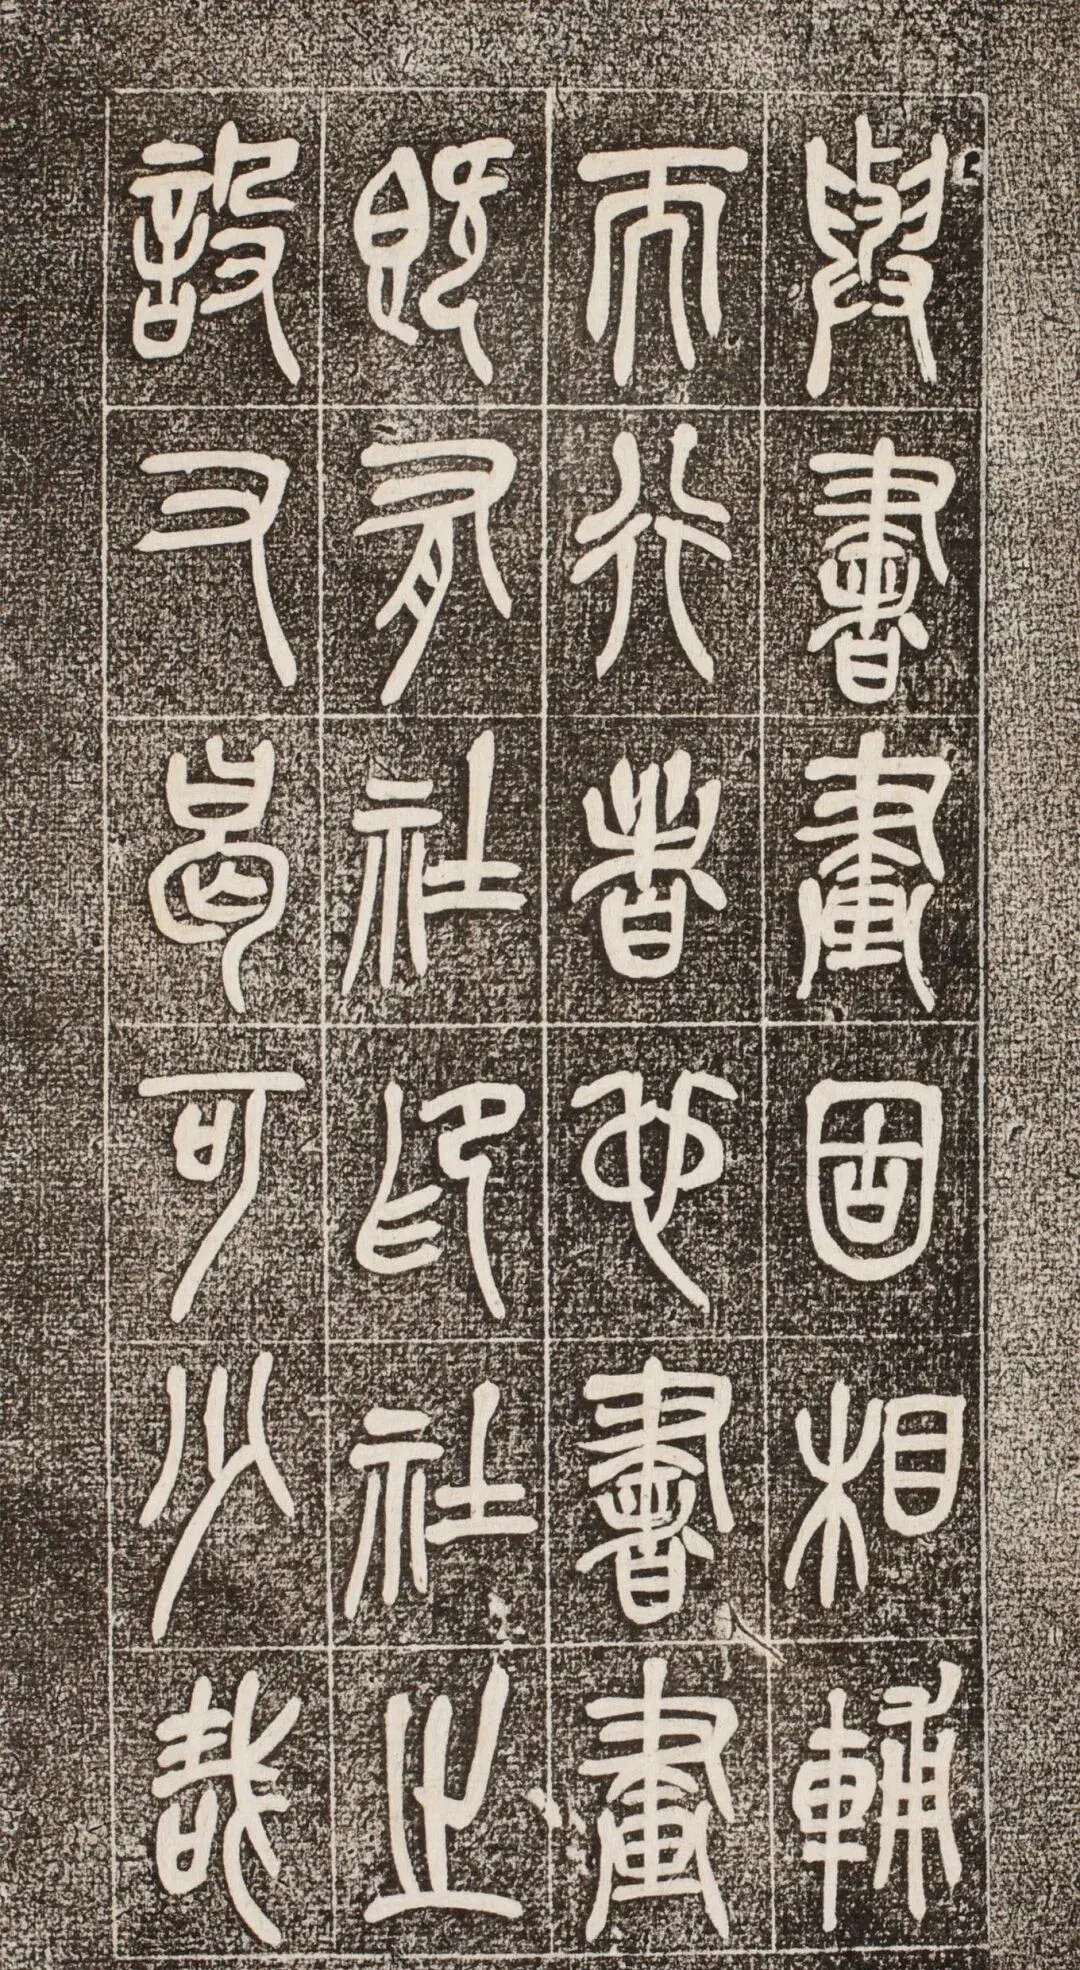 與書畫固相輔
而行者也書畫
既有社印社之
設又曷可少哉